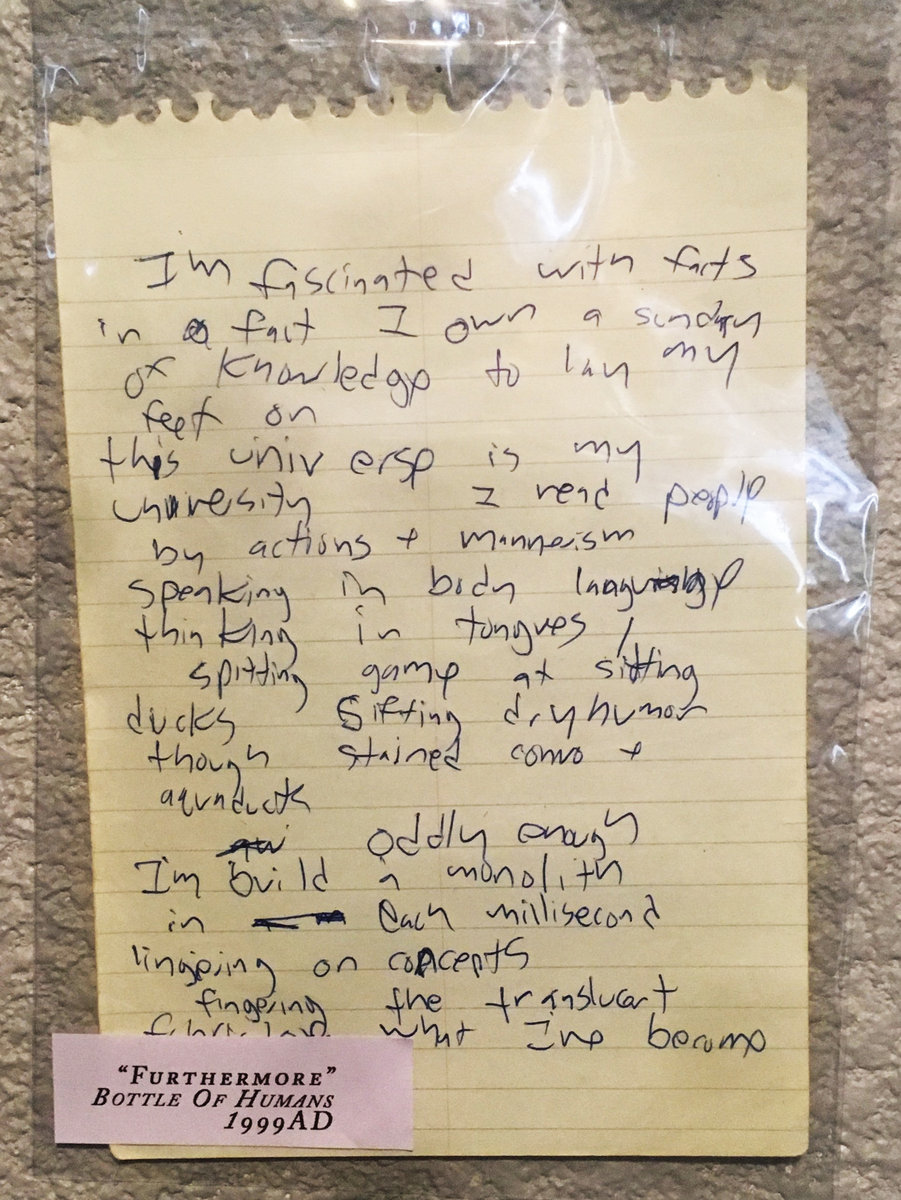 I'm fascinated with facts
in fact I own a
of knowledge to lay my
feet on
this universe is my
university I read people
by actions + mannerism
speaking in body language
thinking in tongues /
spitting game at sitting
ducks sifting dry humor
though stained convo +
oddly enough
I'm build a monolith
in each millisecond
lingering on concepts
fingering the
what I've become
"FURTHERMORE"
BOTTLE OF HUMANS
1999AD